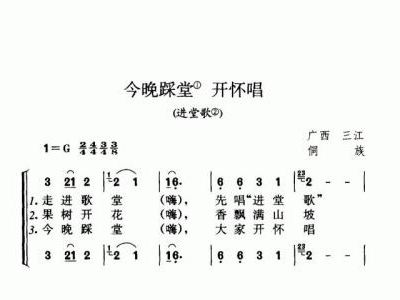 今晚踩堂① 开怀唱
(进堂歌②)
广西 三江
侗族
1=G 2/4 4/4 3/4 3/8
3 21 2 | 2 1 | 16· | 6 6 3 1 | 2 2 |
1. 走进歌堂 (嗨), 先唱“进堂歌”
2. 果树开花 (嗨), 香飘满山坡
3. 今晚踩堂 (嗨), 大家开怀唱
3 21 2 | 2 1 | 16· | 6 6 3 1 | 2 2 |